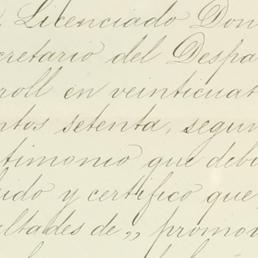 l Licenciado Don
cretario del Despa
roll en veinticuat
ntos setenta, segun
timonio que debi
ido y certifico que
ultades de „ promov